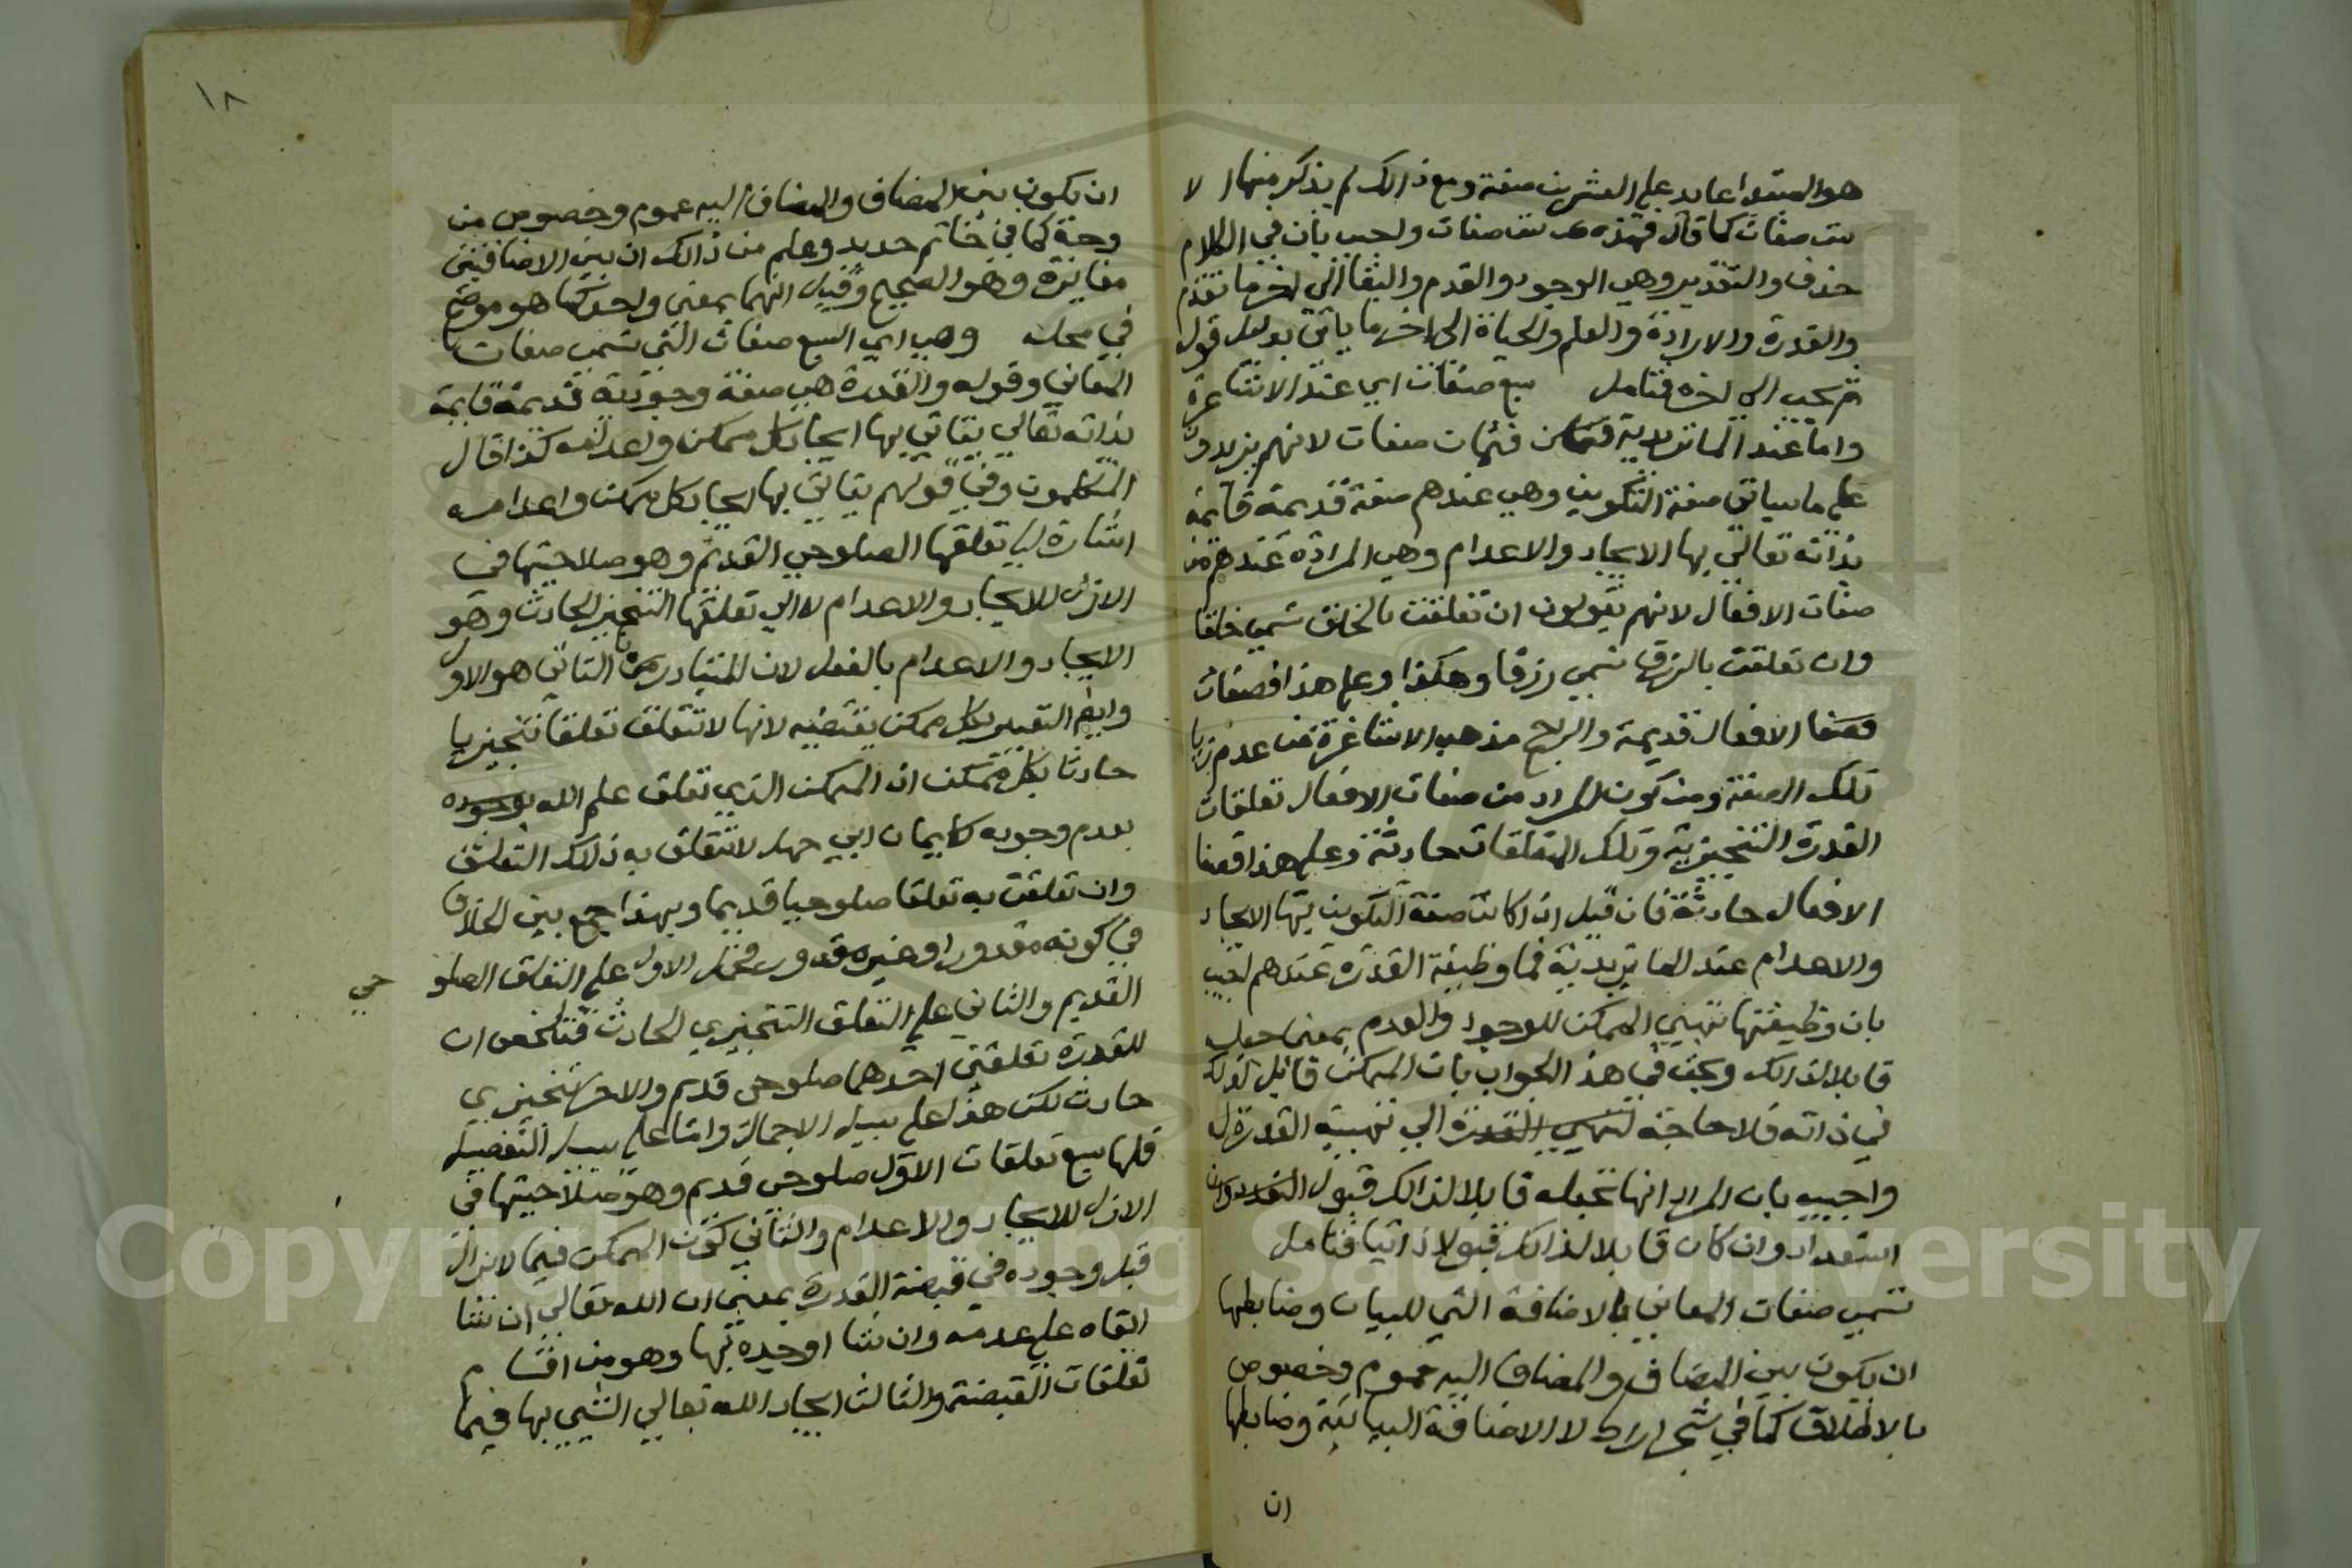 هو المبتدا عايد علي العشرين صفة ومع ذالك لم يذكر منها الا
ست صفات كما قال فهذه ست صفات واجيب بان في الكلام
حذف والتقدير وهي الوجود والقدم والبقا الي اخر ما تقدم
والقدرة والارادة والعلم والحياة الي اخر ما ياتي بدليل قول
ثم يجب الي اخره فتامل سبع صفات اي عند الاشاعرة
واما عند الماتريدية فثمان صفات لانهم يزيدون
علي ما سياتي صفة التكوين وهي عندهم صفة قديمة قايمة
بذاته تعالي بها الايجاد والاعدام وهي المرادة عندهم من
صفات الافعال لانهم يقولون ان تعلقت بالخلق تسمي خلقا
وان تعلقت بالرزق تسمي رزقا وهكذا وعلي هذا فصفات
فصفا الافعال قديمة والراجح مذهب الاشاعرة من عدم زيا
تلك الصفة ومن كون المراد من صفات الافعال تعلقات
القدرة التنجيزية وتلك التعلقات حادثة وعلي هذا فصفا
الافعال حادثة فان قيل اذا كانت صفة التكوين بها الايجاد
والاعدام عند الماتريدية فما وظيفة القدرة عندهم اجيب
بان وظيفتها تهيي الممكن للوجود والعدم بمعني جعله
قابلا لذالك وبحث في هذا الجواب بان الممكن قابل لذلك
في ذاته فلا حاجة لتهيي القدرة الي تهيية القدرة له
واجيب بان المراد انها تجعله قابلا لذالك قبول
استعداد وان كان قابلا لذالك قبولا ذاتيا فتامل
تسمي صفات المعاني بالاضافة التي للبيان وضابطها
ان يكون بين المضاف والمضاف اليه عموم وخصوص
بالاطلاق كما في شجر اراك لا الاضافة البيانية وضابطها
ان
١٨
ان يكون بين المضاف والمضاف اليه عموم وخصوص من
وجه كما في خاتم حديد وعلم من ذالك ان بين الاضافيتين
مغايرة وهو الصحيح وقيل انهما بمعني واحد كما هو موضح
في محله وهي اي السبع صفات التي تسمي صفات
المعاني وقوله والقدرة هي صفة وجودية قديمة قايمة
بذاته تعالي يتاتي بها ايجاد كل ممكن واعدامه كذا قال
المتكلمون وفي قولهم يتاتي بها ايجاد كل ممكن واعدامه
اشارة الي تعلقها الصلوحي القديم وهو صلاحيتها في
الازل للايجاد والاعدام لا الي تعلقها التنجيزي الحادث وهو
الايجاد والاعدام بالفعل لان المتبادر من التاتي هو الاول
وايضا التعبير بكل ممكن يقتضيه لانها لا تتعلق تعلقا تنجيزيا
حادثا بكل ممكن اذ الممكن الذي تعلق علم الله بوجوده
بعدم وجوده كايمان ابي جهل لا تتعلق به ذلك التعلق
وان تعلقت به تعلقا صلوحيا قديما وبهذا جمع بين الخلاف
في كونه مقدورا او غير مقدور فحمل الاول علي التعلق الصلو
حي
القديم والثاني علي التعلق التنجيزي الحادث فتلخص ان
للقدرة تعلقين احدهما صلوحي قديم والاخر تنجيزي
حادث لكن هذا علي سبيل الاجمال واما علي سبيل التفصيل
فلها سبع تعلقات الاول صلوحي قديم وهو صلاحيتها في
الازل للايجاد والاعدام والثاني كون الممكن فيما لا يزال
قبل وجوده في قبضة القدرة بمعني ان الله تعالي ان شا
ابقاه علي عدمه وان شا اوجده بها وهو من اقسام
تعلقات القبضة والثالث ايجاد الله تعالي الشي بها فيما
Copyright © King Saud University